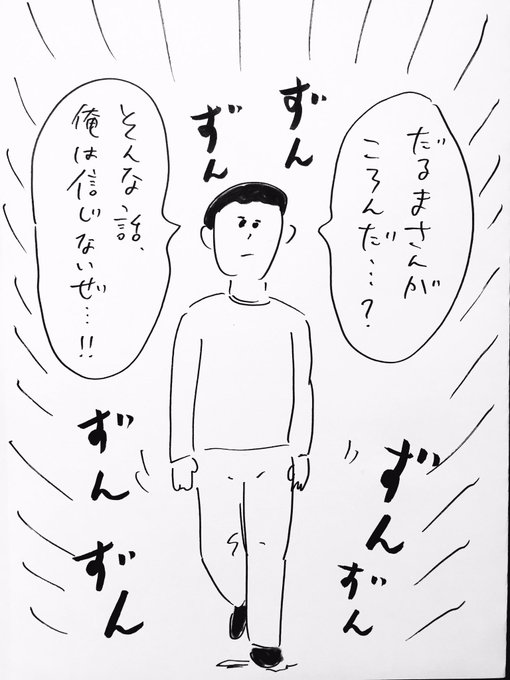 だるまさんが
ころんだ…?
そんな話、
俺は信じないぜ…!!
ずん
ずん
ずん
ずん
ずん
ずん